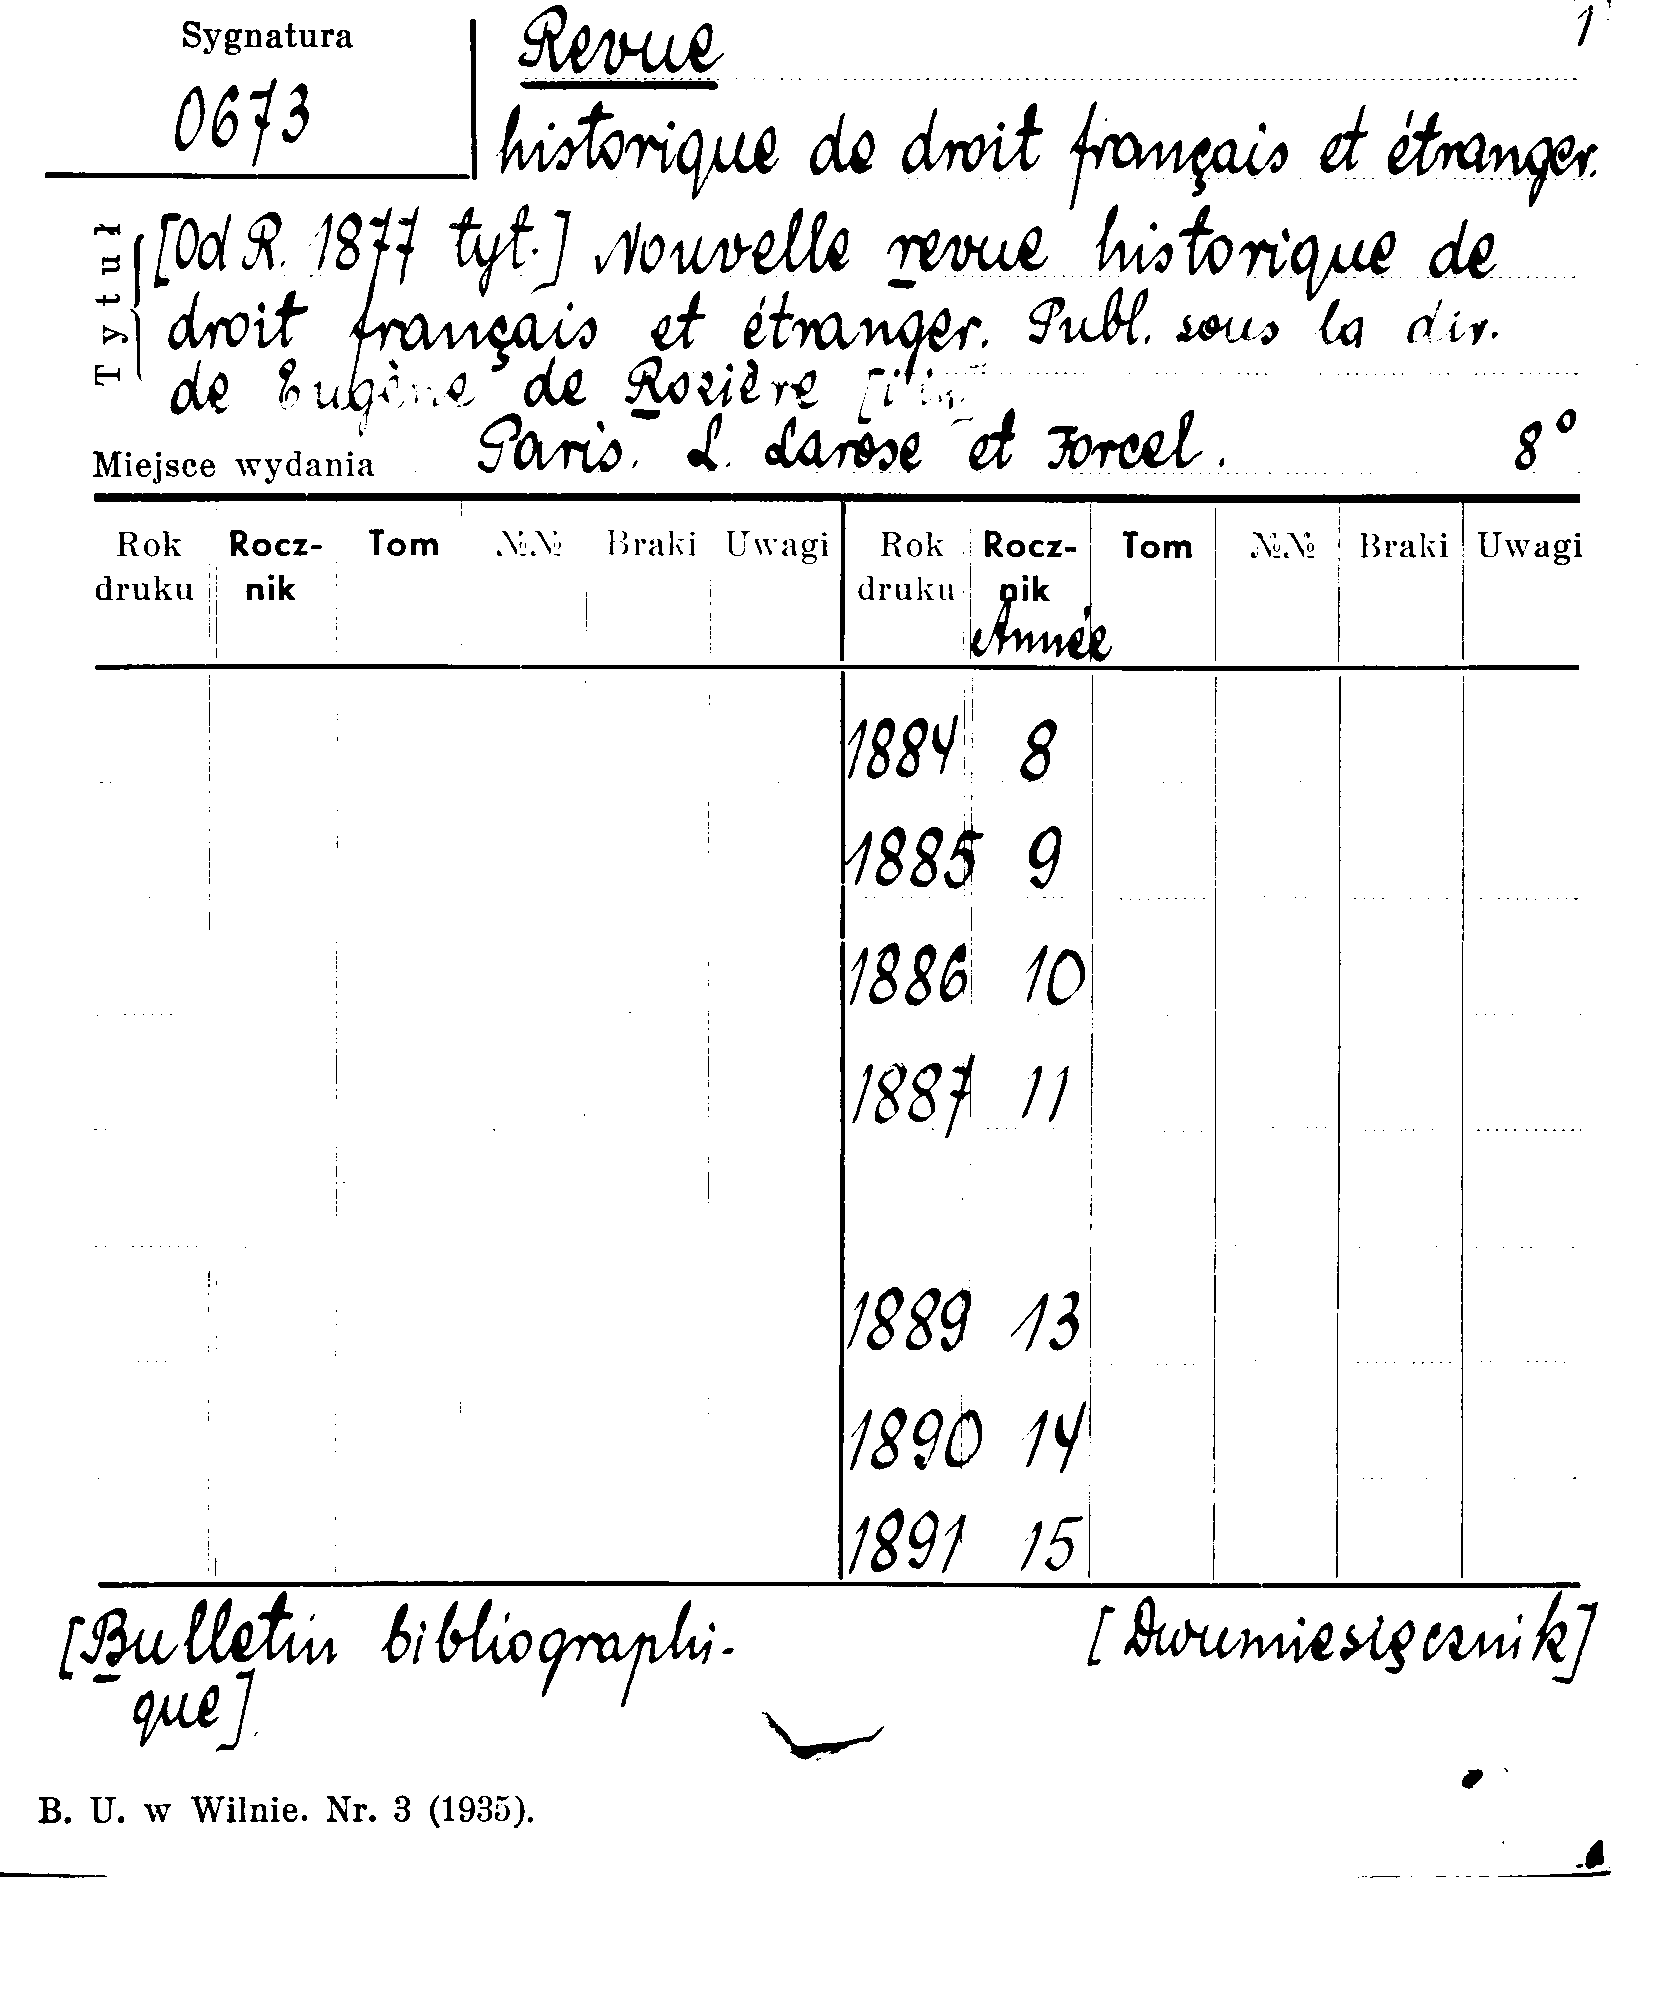 Sygnatura
0673
1
Revue
historique de droit français et étranger.
Tytuł
[Od R. 1877 tyt.] Nouvelle revue historique de
droit français et étranger. Publ. sous la dir.
de Eugène de Rozière
Miejsce wydania Paris. L. Larose et Forcel. 8°
Rok druku Rocz-nik Tom №№ Braki Uwagi Rok druku Rocz-nik Tom №№ Braki Uwagi
Année
1884 8
1885 9
1886 10
1887 11
1889 13
1890 14
1891 15
[Bulletin bibliographi- [Dwumiesięcznik]
que]
B. U. w Wilnie. Nr. 3 (1935).